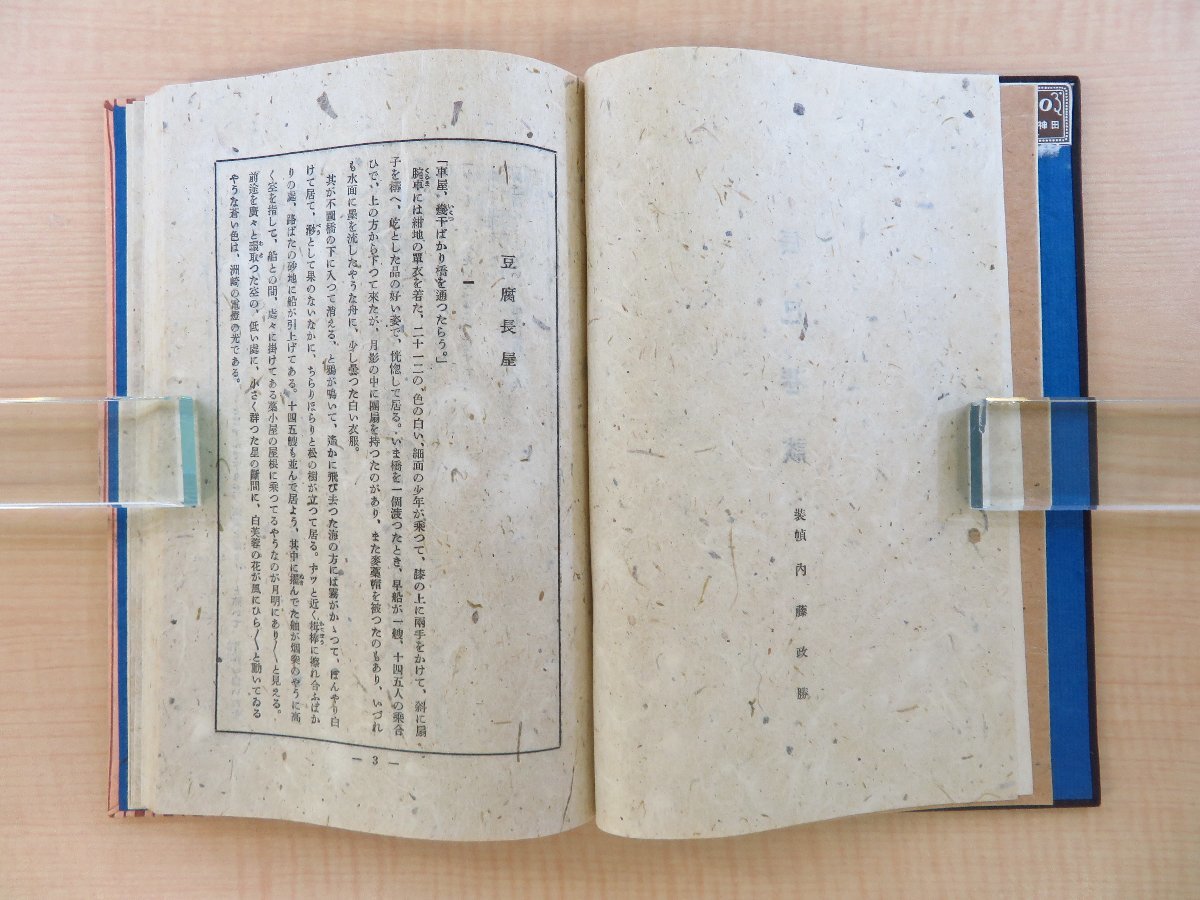 神田
装幀 内藤政勝
豆腐長屋
一
「車屋、幾干ばかり橋を通つたらう。」
腕車には紺地の單衣を着た、二十一二の、色の白い、細面の少年が乘つて、膝の上に兩手をかけて、斜に扇
子を構へ、屹とした品の好い姿で、恍惚して居る。いま橋を一個渡つたとき、早船が一艘、十四五人の乘合
ひで、上の方から下つて來たが、月影の中に團扇を持つたのがあり、また麥藁帽を被つたのもあり、いづれ
も水面に墨を流したやうな舟に、少し曇つた白い衣服。
其が不圖橋の下に入つて消える、と鴉が鳴いて、遙かに飛び去つた海の方には靄がかゝつて、ぼんやり白
けて居て、渺として果のないなかに、ちらりほらりと松の樹が立つて居る。ヂッと近く梶棒に擦れ合ふばか
りの處、路ばたの砂地に船が引上げてある。十四五艘も並んで居よう、其中に擢んでた舳が烟突のやうに高
く空を指して、船との間、處々に掛けてある藁小屋の屋根に乘つてるやうなのが月明にあり〳〵と見える。
前途を廣々と環取つた空の、低い處に、小さく群つた星の斷間に、白芙蓉の花が風にひら〳〵と動いてゐる
やうな蒼い色は、洲崎の電燈の光である。
— 3 —